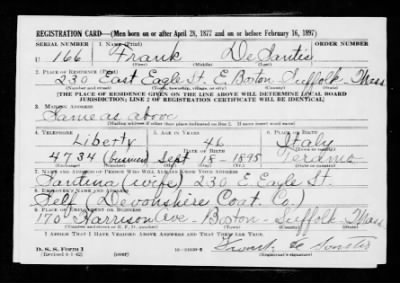 REGISTRATION CARD—(Men born on or after April 28, 1877 and on or before February 16, 1897)
SERIAL NUMBER 1. NAME (Print) ORDER NUMBER
U 166 Frank De Santis
(First) (Middle) (Last)
2. PLACE OF RESIDENCE (Print)
230 East Eagle St. E. Boston Suffolk Mass
(Number and street) (Town, township, village, or city) (County) (State)
[THE PLACE OF RESIDENCE GIVEN ON THE LINE ABOVE WILL DETERMINE LOCAL BOARD
JURISDICTION; LINE 2 OF REGISTRATION CERTIFICATE WILL BE IDENTICAL]
3. MAILING ADDRESS
Same as above
[Mailing address if other than place indicated on line 2. If same insert word same]
4. TELEPHONE 5. AGE IN YEARS 6. PLACE OF BIRTH
Liberty 46 Italy
DATE OF BIRTH
4734 (business) Sept 18 - 1895 Teramo
7. NAME AND ADDRESS OF PERSON WHO WILL ALWAYS KNOW YOUR ADDRESS
Santina (wife) 230 E. Eagle St.
8. EMPLOYER'S NAME AND ADDRESS
Self (Devonshire Coat Co.)
9. PLACE OF EMPLOYMENT OR BUSINESS
170 Harrison Ave - Boston - Suffolk Mass.
(Number and street or R. F. D. number) (Town) (County) (State)
I AFFIRM THAT I HAVE VERIFIED ABOVE ANSWERS AND THAT THEY ARE TRUE.
D. S. S. Form 1
(Revised 4-1-42) (over) (Registrant's signature)